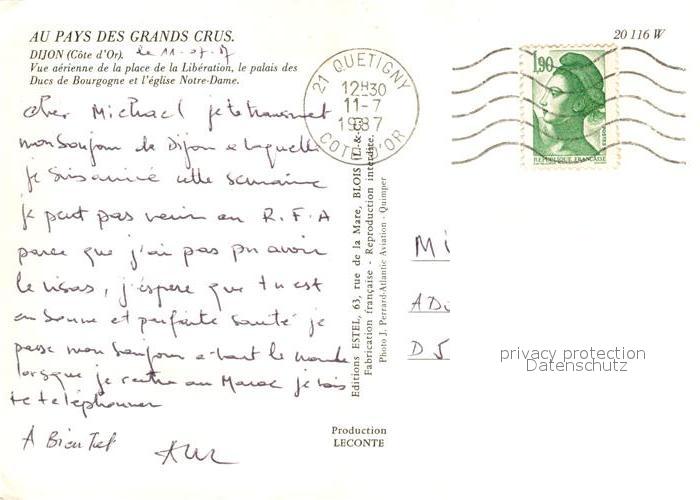 AU PAYS DES GRANDS CRUS.
20 116 W
DIJON (Côte d'Or). le 11-07-87
Vue aérienne de la place de la Libération, le palais des
Ducs de Bourgogne et l'église Notre-Dame.
21 QUETIGNY
12H30
11-7
1987
COTE D'OR
1,90
POSTES
REPUBLIQUE FRANÇAISE
cher Michael je te transmet
mon bonjour de Dijon laquelle
je suis arrivé cette semaine
je peut pas venir en R.F.A
parce que j'ai pas pu avoir
le visas, j'espere que tu est
en bonne et parfaite santé je
passe mon bonjour a tout le monde
lorsque je rentre au Maroc je vais
te telephoner
A Bientot
Editions ESTEL, 63, rue de la Mare, BLOIS (L.-&-C.)
Fabrication française - Reproduction interdite.
Photo J. Perrard-Atlantic Aviation - Quimper
Production
LECONTE
Mi
AD
D5
privacy protection
Datenschutz